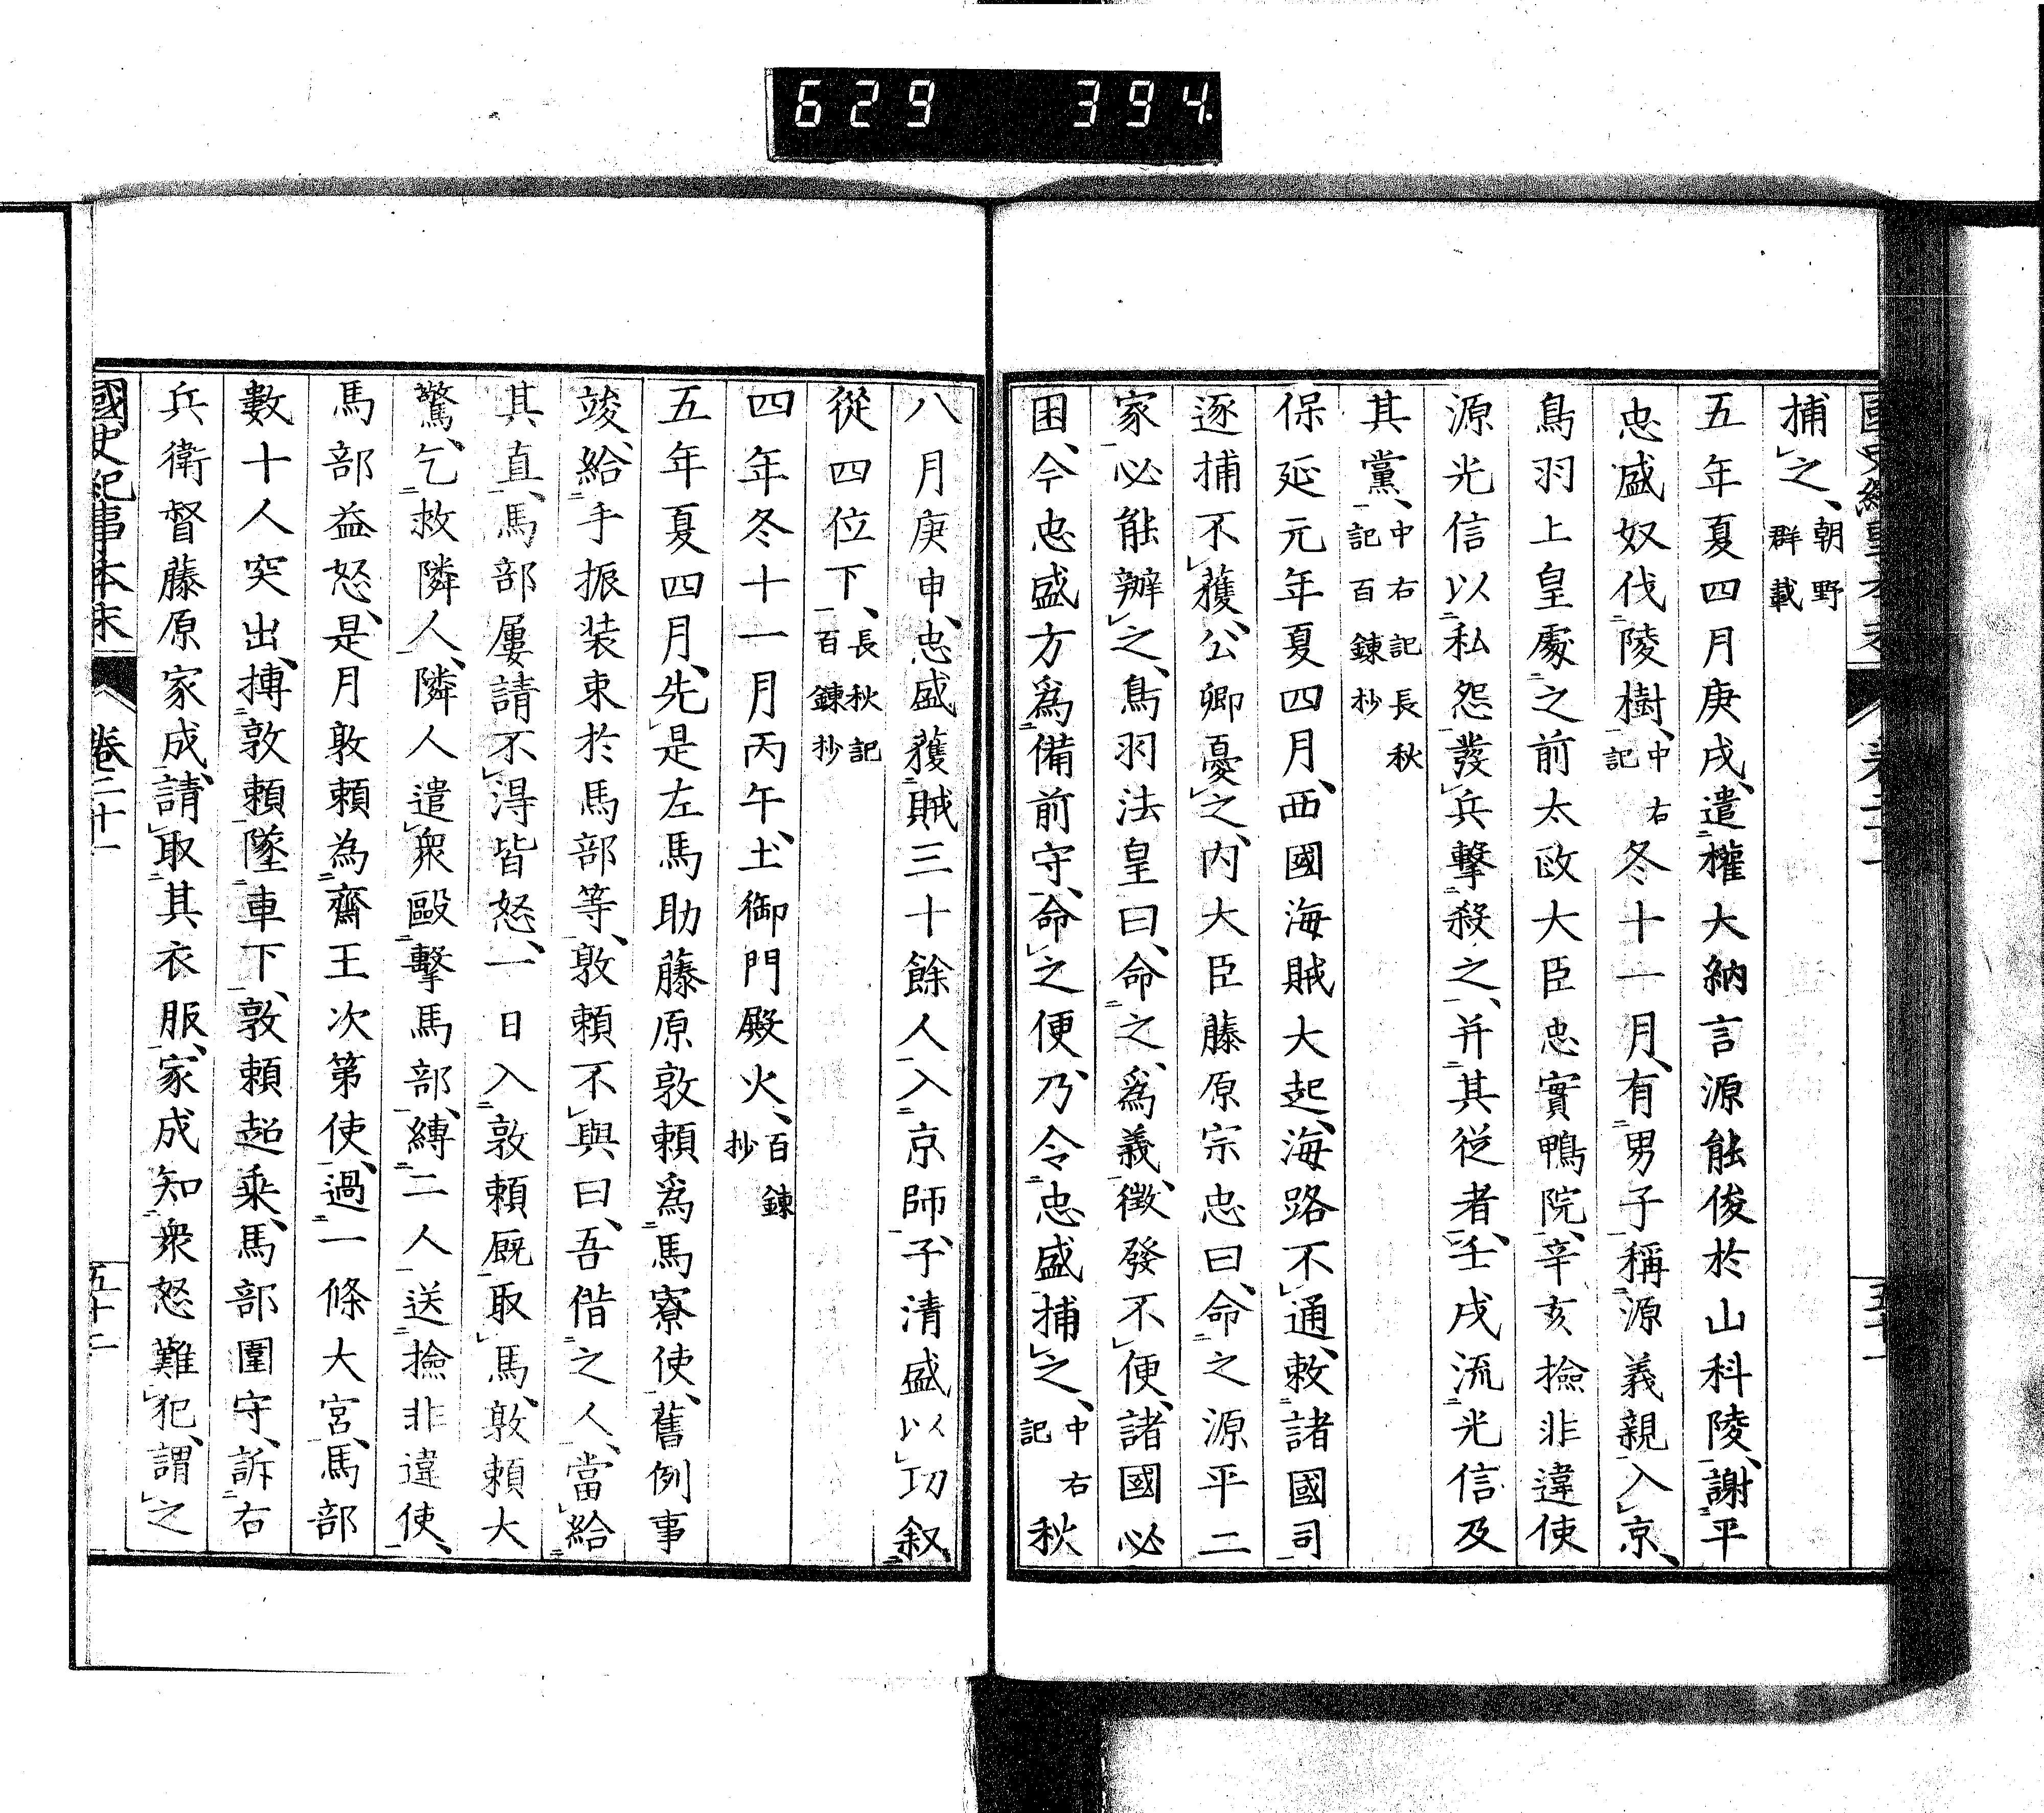 629 394.
捕之、朝野群載
五年夏四月庚戌、遣權大納言源能俊於山科陵、謝平
忠盛奴伐陵樹、中右記冬十一月、有男子稱源義親入京、
鳥羽上皇處之前太政大臣忠實鴨院、辛亥撿非違使
源光信以私怨發兵擊殺之、并其從者、壬戌流光信及
其黨、中右記長秋記百錬抄
保延元年夏四月、西國海賊大起、海路不通、敕諸國司
逐捕不獲、公卿憂之、內大臣藤原宗忠曰、命之源平二
家必能辦之、鳥羽法皇曰、命之爲義、徵發不便、諸國必
困、今忠盛方爲備前守、命之便、乃令忠盛捕之、中右記秋
八月庚申、忠盛獲賊三十餘人入京師、子清盛以功叙
從四位下、長秋記百錬抄
四年冬十一月丙午、土御門殿火、百錬抄
五年夏四月、先是左馬助藤原敦賴爲馬寮使、舊例事
竣、給手振装束於馬部等、敦賴不與曰、吾偕之人、當給
其直、馬部屢請不得皆怒、一日入敦賴厩取馬、敦賴大
驚、乞救隣人、隣人遣衆毆擊馬部、縛二人送撿非違使、
馬部益怒、是月敦賴為齋王次第使、過一條大宮、馬部
數十人突出、摶敦賴墜車下、敦賴起乘、馬部圍守、訴右
兵衛督藤原家成請取其衣服、家成知衆怒難犯、謂之
國史紀事本末 卷二十一 五十二